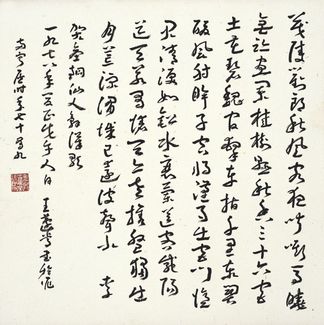 茂陵劉郎秋風客夜聞馬嘶曉
無跡畫闌桂樹懸秋香三十六宮
土花碧魏官牽車指千里東關
酸風射眸子空將漢月出宮門憶
君清淚如鉛水衰蘭送客咸陽
道天若有情天亦老攜盤獨出
月荒涼渭城已遠波聲小 李
賀金銅仙人辭漢歌
一九七八年
時年七十有九